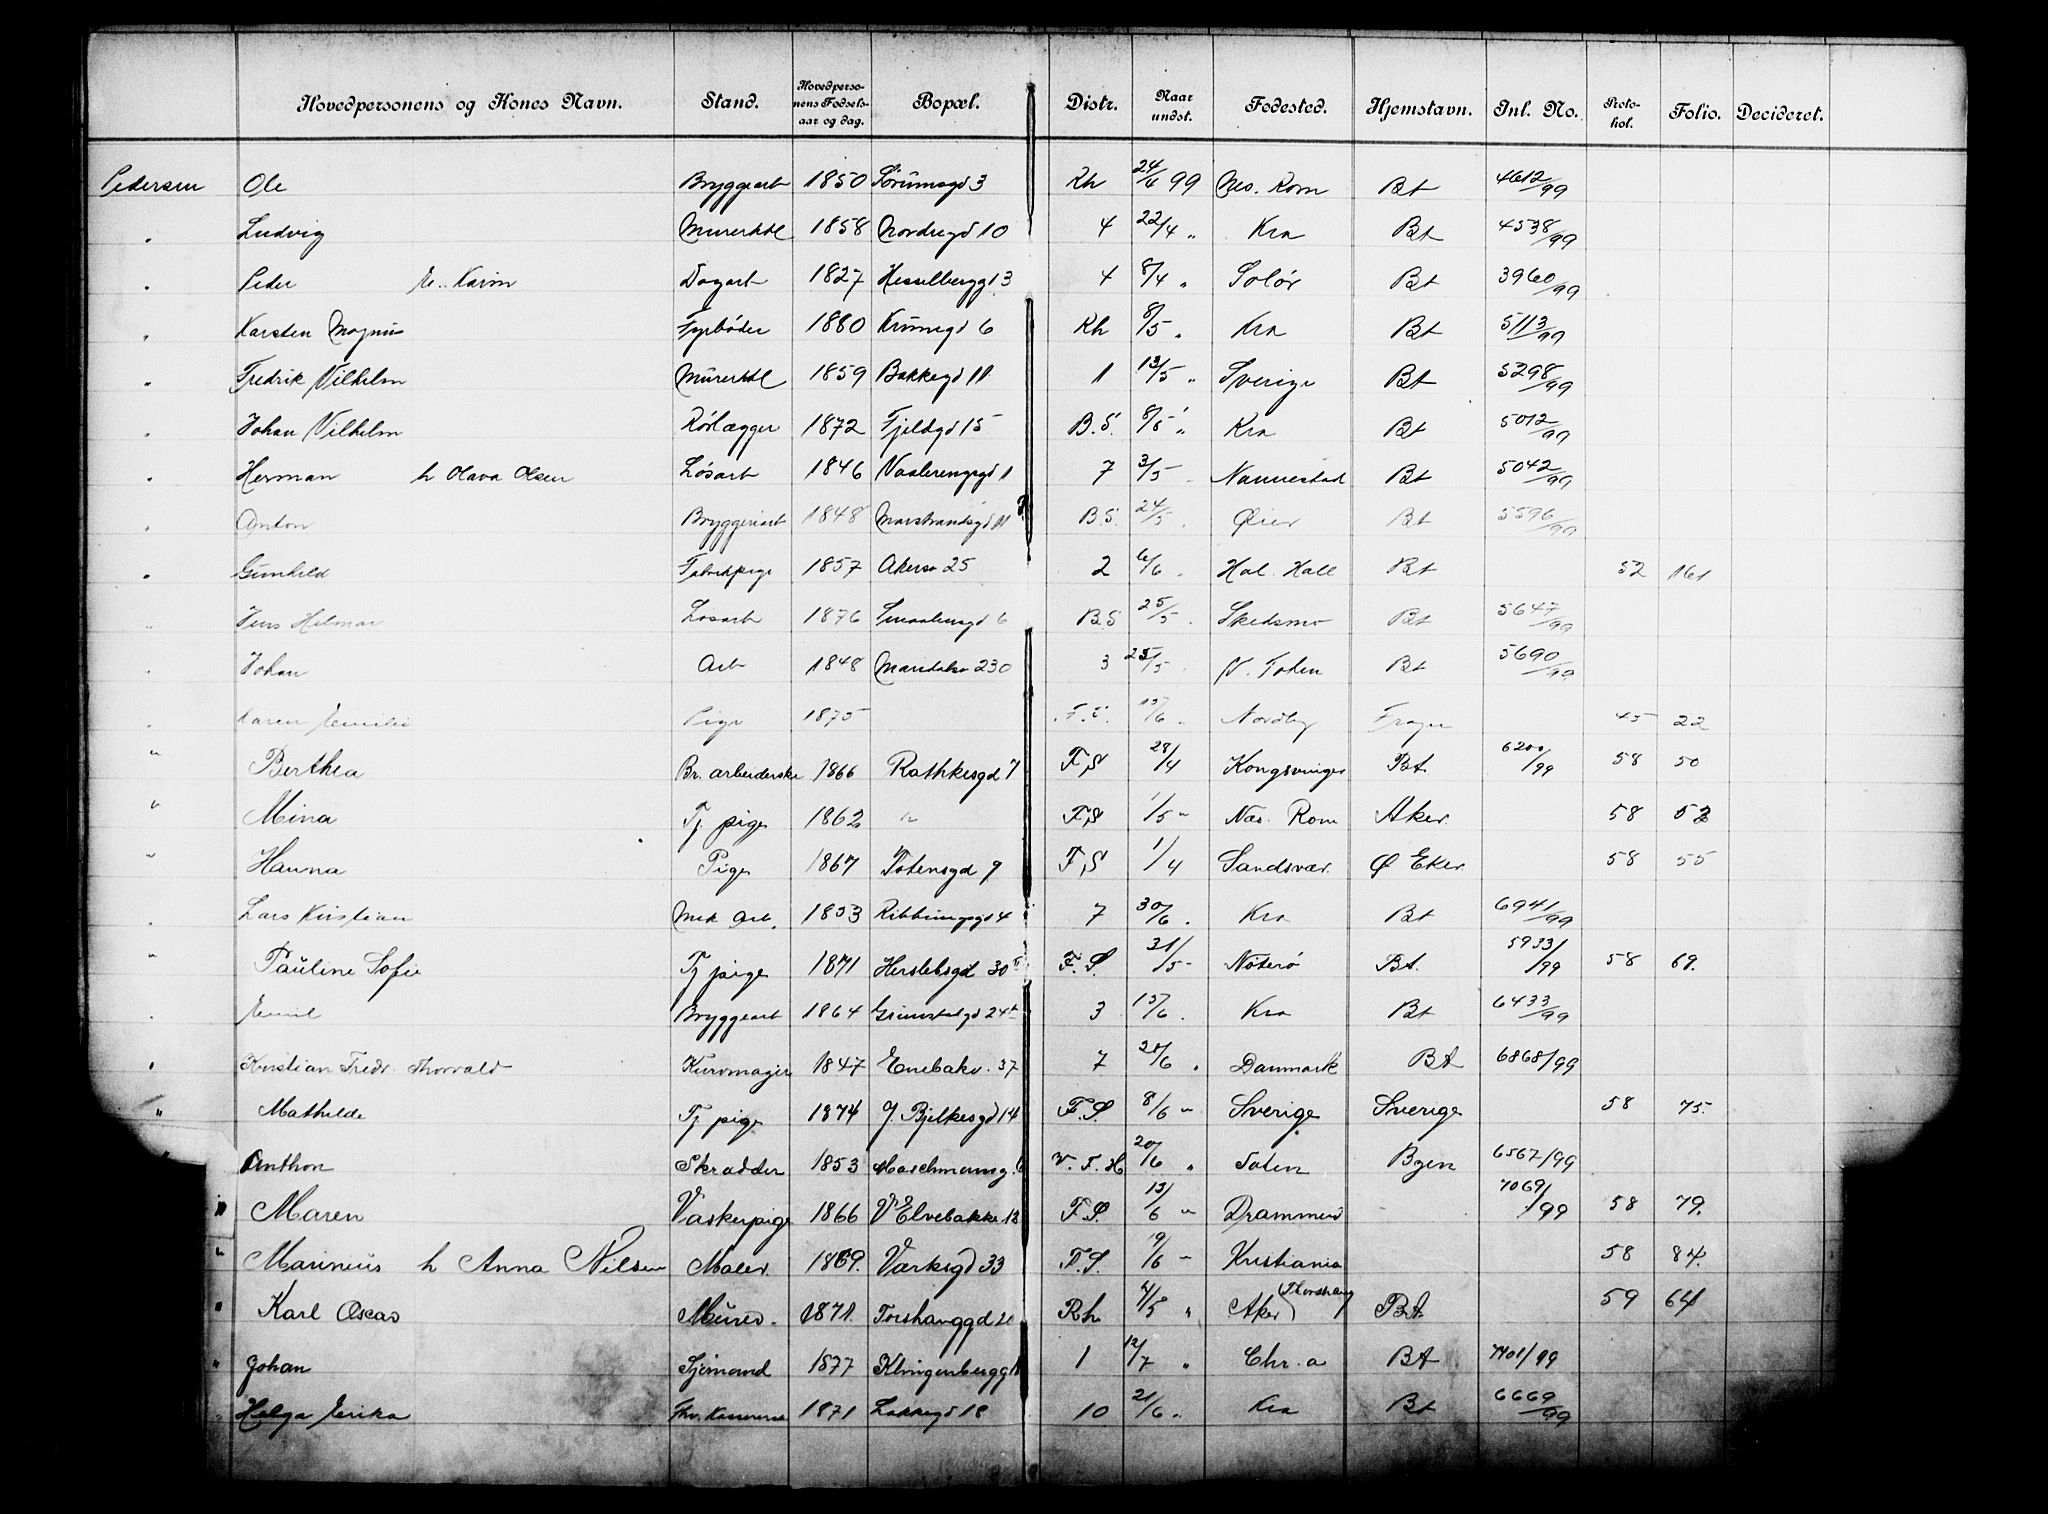 Hovedpersonens og Kones Navn. Stand. Hovedpersonens Fødselsaar og dag. Bopæl. Distr. Naar undst. Fødested. Hjemstavn. Inl. No. Protokol. Folio. Decideret.
Pedersen Ole Bryggearb 1850 Sørumsgd 3 Rh 24/6 99 Nes. Rom Bt 4612/99
" Ludvig Murerhdl 1858 Nordregd 10 4 22/4 " Kra Bt 4538/99
" Peder E. Karin Dagarb 1827 Hesselbergg 13 4 8/4 " Solør Bt 3960/99
" Karsten Magnus Fyrbøder 1880 Krumsgd 6 Rh 8/5 " Kra Bt 5113/99
" Fredrik Vilhelm Murerhdl 1859 Bakkegd 11 1 13/5 " Sverige Bt 5298/99
" Johan Vilhelm Rørlægger 1872 Fjeldgd 15 B.S. 8/5 " Kra Bt 5012/99
" Herman h Olava Olsen Løsarb 1846 Vaalerengsgd 1 7 3/5 Nannestad Bt 5042/99
" Anton Bryggeriarb 1848 Marstrandsgd 11 B.S. 24/5 " Øier Bt 5596/99
" Gunhild Fabrikpige 1857 Akersv 25 2 6/6 " Hol. Hall Bt 52 161
" Jens Hilmar Løsarb 1876 Smaalensgd 6 B.S 25/5 " Skedsmo Bt 5647/99
" Johan Arb 1848 Maridalsv 230 3 25/5 V. Toten Bt 5690/99
" Karen Emilie Pige 1875 F.S. 15/6 " Nordby 45 22
" Berthea Br. arbeiderske 1866 Rathkesgd 7 F.S 28/4 Kongsvinger Bt. 6200/99 58 50
" Mina Tj. pige 1862 " F.S 1/5 " Næs. Rom Aker. 58 52
" Hanna Pige 1867 Totensgd 9 F.S 1/4 Sandsvær. Ø Eker. 58 55
" Lars Kristian Mek Arb. 1853 Ribbungsgd 4 7 30/6 " Kra Bt 6941/99
" Pauline Sofie Tj pige 1871 Herslebsgd 30 F.S. 31/5 " Nøterø Bt. 5933/99 58 69.
" Emil Bryggearb 1864 Grimstadgd 24 3 15/6 " Kra Bt 6433/99
" Kristian Fredr. Thorvald Kurvmager 1847 Enebakv. 37 7 28/6 " Danmark Bt 6868/99
" Mathilde Tj. pige 1874 J. Bjelkesgd 14 F.S. 8/6 " Sverige Sverige 58 75.
" Anthon Skrædder 1853 Maschmannsg. 6 V.F.H 20/6 " Toten Byen 6567/99
" Maren Vaskerpige 1866 V Elvebakke 12 F.S. 13/6 " Drammen 7069/99 58 79.
" Marinius h Anna Nilsen Maler. 1869. Værksgd 33 F.S. 9/6 " Kristiania 58 84.
" Karl Oscar Murer. 1871. Torshauggd 21 Rh. 4/5 " Aker (Thorshaug) Bt. 59 64
" Johan Sjømand 1877 Klingenbergg 1 12/7 " Chr.a Bt 7101/99
" Helga Erika 1871 Lakkegd 18 10 21/6 " Kra Bt 6669/99